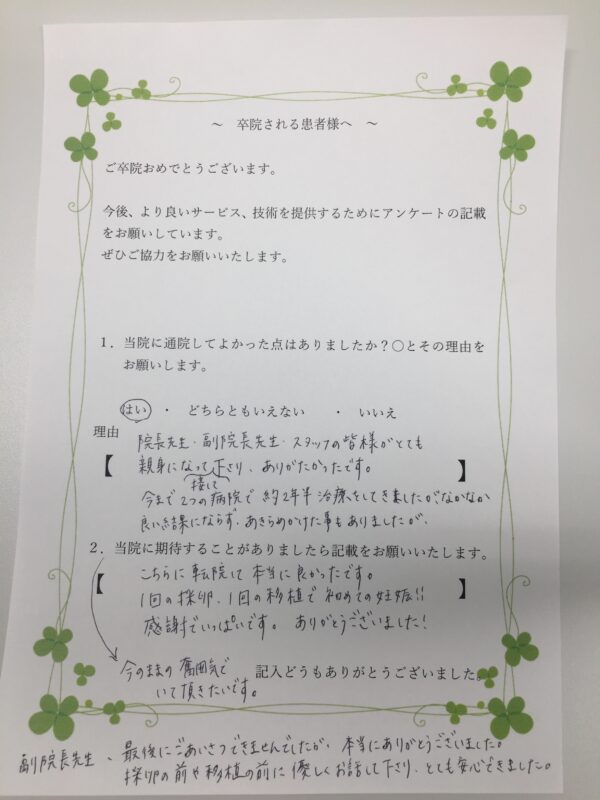 ～　卒院される患者様へ　～
ご卒院おめでとうございます。
今後、より良いサービス、技術を提供するためにアンケートの記載
をお願いしています。
ぜひご協力をお願いいたします。
１．当院に通院してよかった点はありましたか？○とその理由を
お願いします。
はい　・　どちらともいえない　・　いいえ
理由
院長先生・副院長先生・スタッフの皆様がとても
【親身になって下さり、ありがたかったです。】
接して
今まで2つの病院で約2年半治療をしてきましたがなかなか
良い結果にならず、あきらめかけた事もありましたが、
２．当院に期待することがありましたら記載をお願いいたします。
【こちらに転院して本当に良かったです。】
1回の採卵、1回の移植で初めての妊娠!!
感謝でいっぱいです。ありがとうございました!
今のままの雰囲気で
いて頂きたいです。
記入どうもありがとうございました。
副院長先生、最後にごあいさつできませんでしたが、本当にありがとうございました。
採卵の前や移植の前に優しくお話して下さり、とても安心できました。